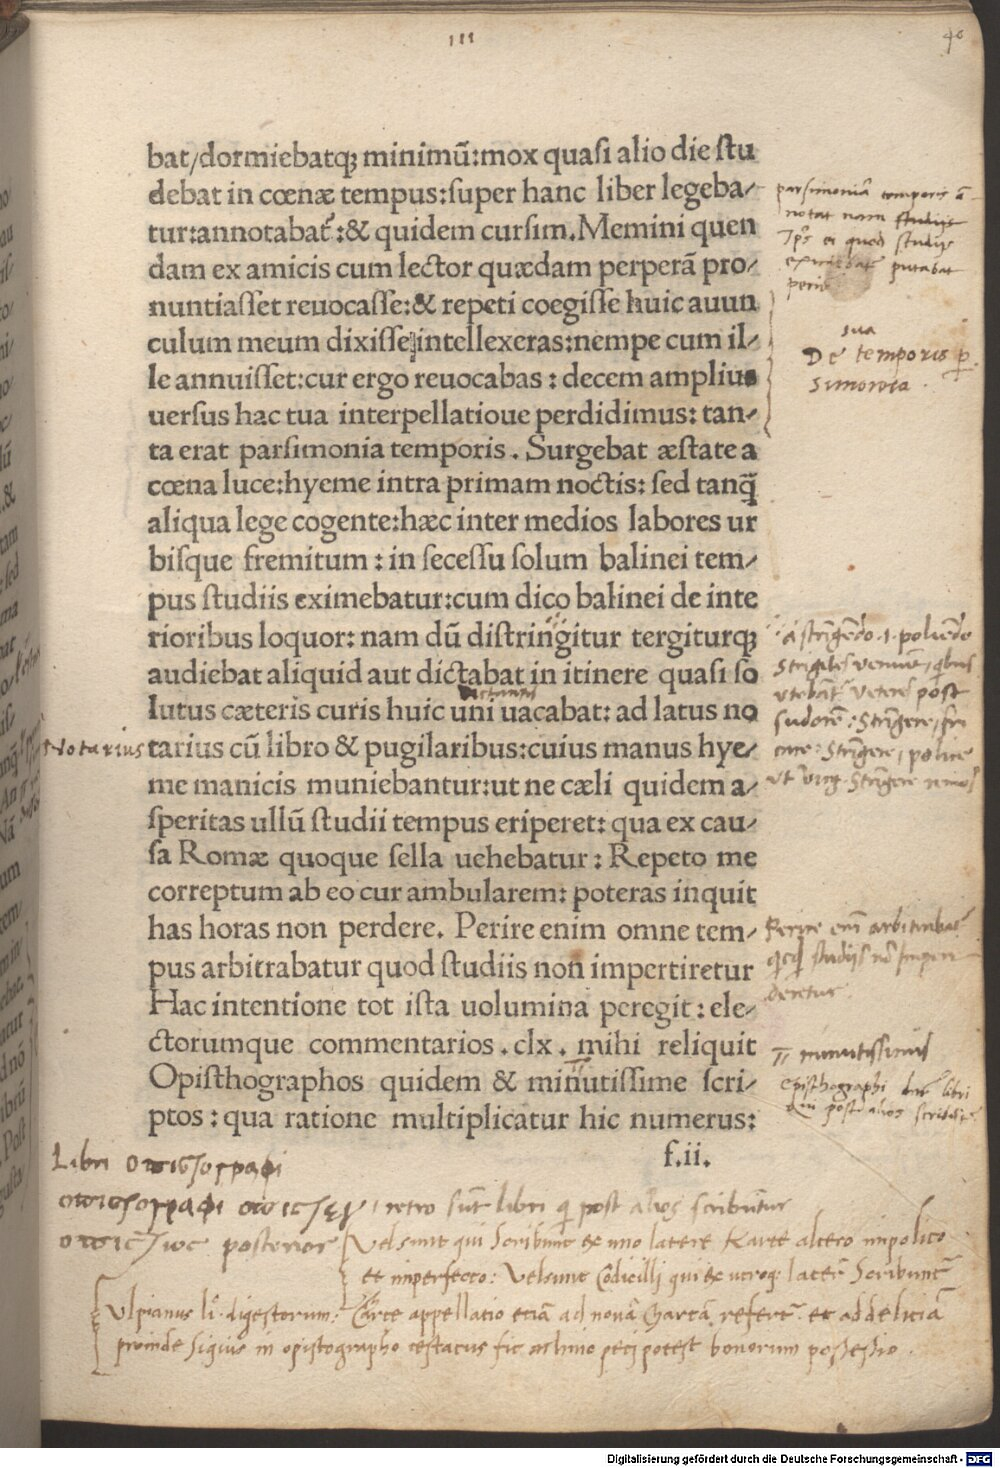 III
40
bat/dormiebatq; minimū:mox quasi alio die stu
debat in cœnæ tempus:super hanc liber legeba-
tur:annotabat̃:& quidem cursim.Memini quen
dam ex amicis cum lector quædam perperā pro-
nuntiasset reuocasse:& repeti coegisse huic auun
culum meum dixisse intellexeras:nempe cum il-
le annuisset:cur ergo reuocabas : decem amplius
uersus hac tua interpellatioue perdidimus: tan-
ta erat parsimonia temporis . Surgebat æstate a
cœna luce:hyeme intra primam noctis: sed tanq̃
aliqua lege cogente:hæc inter medios labores ur
bisque fremitum : in secessu solum balinei tem-
pus studiis eximebatur:cum dico balinei de inte
rioribus loquor: nam dū distringitur tergiturq;
audiebat aliquid aut dictabat in itinere quasi so
lutus cæteris curis huic uni uacabat: ad latus no
tarius cū libro & pugilaribus:cuius manus hye-
me manicis muniebantur:ut ne cæli quidem a-
speritas ullū studii tempus eriperet: qua ex cau-
sa Romæ quoque sella uehebatur : Repeto me
correptum ab eo cur ambularem: poteras inquit
has horas non perdere. Perire enim omne tem-
pus arbitrabatur quod studiis non impertiretur
Hac intentione tot ista uolumina peregit : ele-
ctorumque commentarios . clx . mihi reliquit
Opisthographos quidem & minutissime scri-
ptos : qua ratione multiplicatur hic numerus:
f.ii.
parsimoniā temporis
notat nam studijs
quod studijs
putabat
sua
De temporis
simonia .
Notarius
post
sudorē : Stringere
Stringere
Stringere
Perire enī arbitrabat̃
studiis nō impen
deretur
minutissimis
opisthographi libri
qui post alios
Libri
retro sūt libri q̃ post alios scribūtur
posterior Vel sunt qui scribunt ex uno latere Karte altero impolito
et imperfecto: Vel sunt Codicilli qui ex utroq; latere scribunt̃
Ulpianus li. digestorum: Carte appellatio etiā ad nouā chartā refert̃ et ad deliciā
proinde siquis in opistographo testatus sit peti potest bonorum possessio .
Digitalisierung gefördert durch die Deutsche Forschungsgemeinschaft - DFG